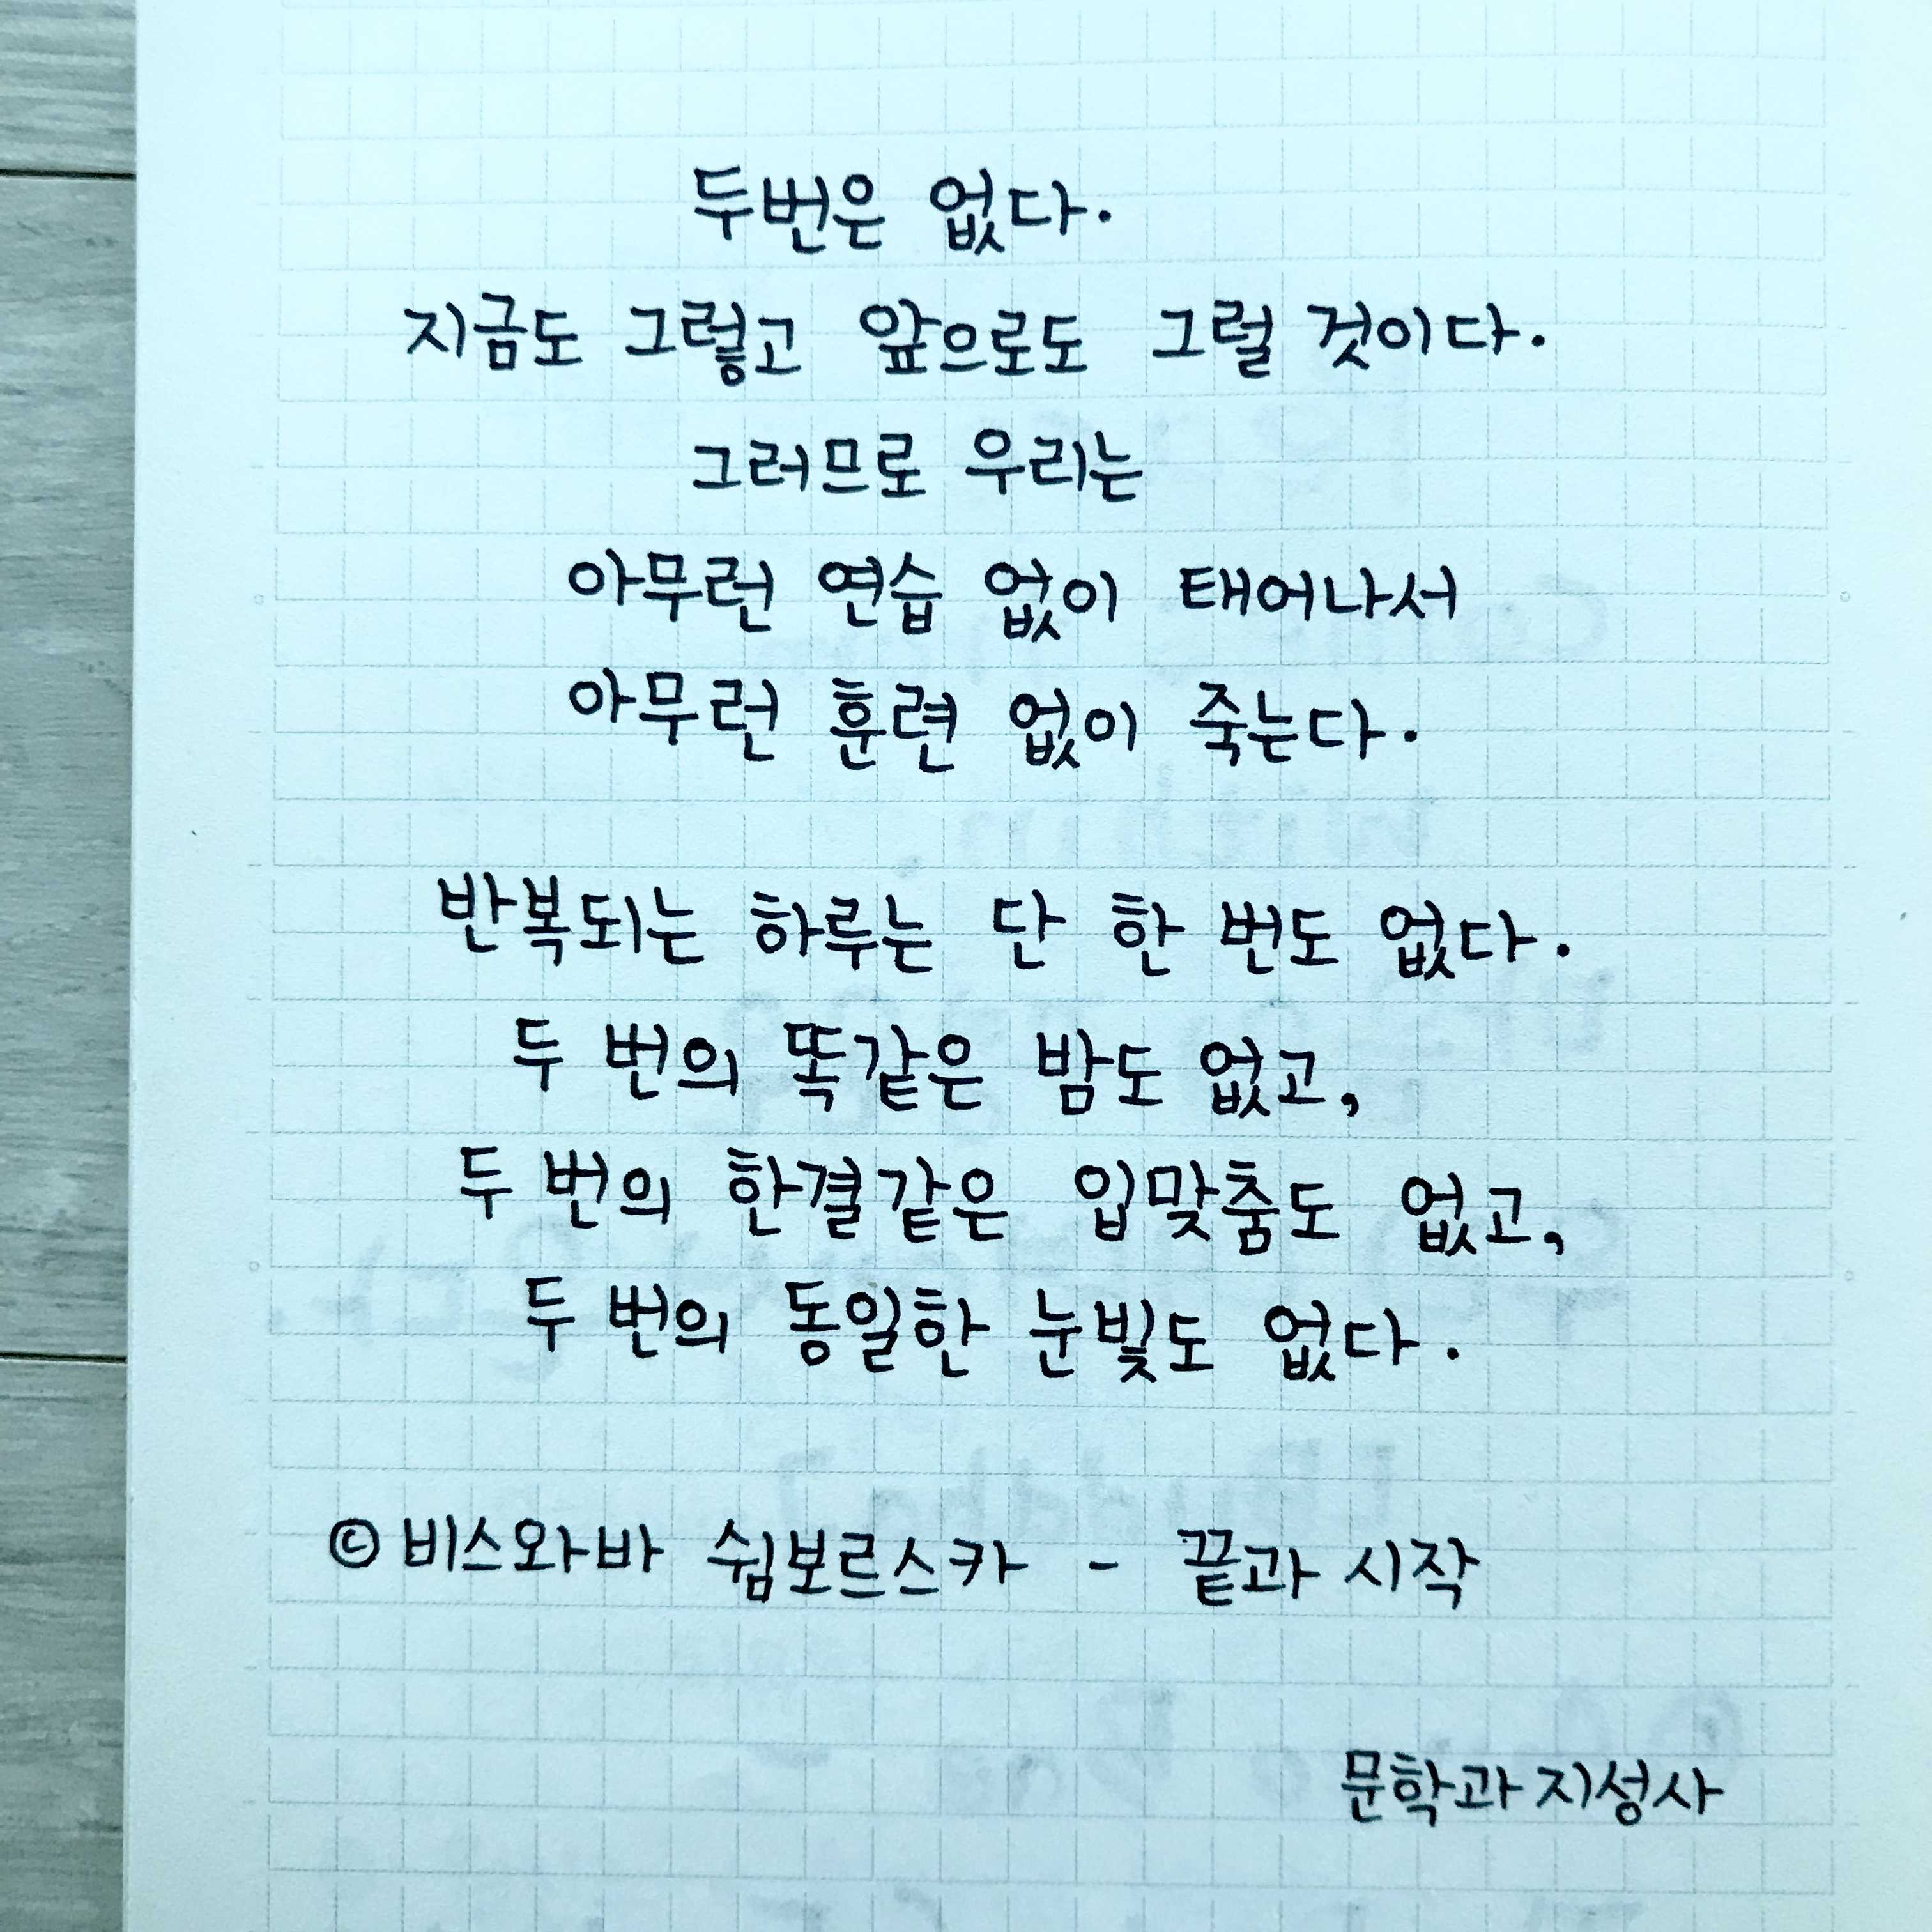 두번은 없다.
지금도 그렇고 앞으로도 그럴 것이다.
그러므로 우리는
아무런 연습 없이 태어나서
아무런 훈련 없이 죽는다.
반복되는 하루는 단 한 번도 없다.
두 번의 똑같은 밤도 없고,
두 번의 한결같은 입맞춤도 없고,
두 번의 동일한 눈빛도 없다.
© 비스와바 쉼보르스카 - 끝과 시작
문학과지성사